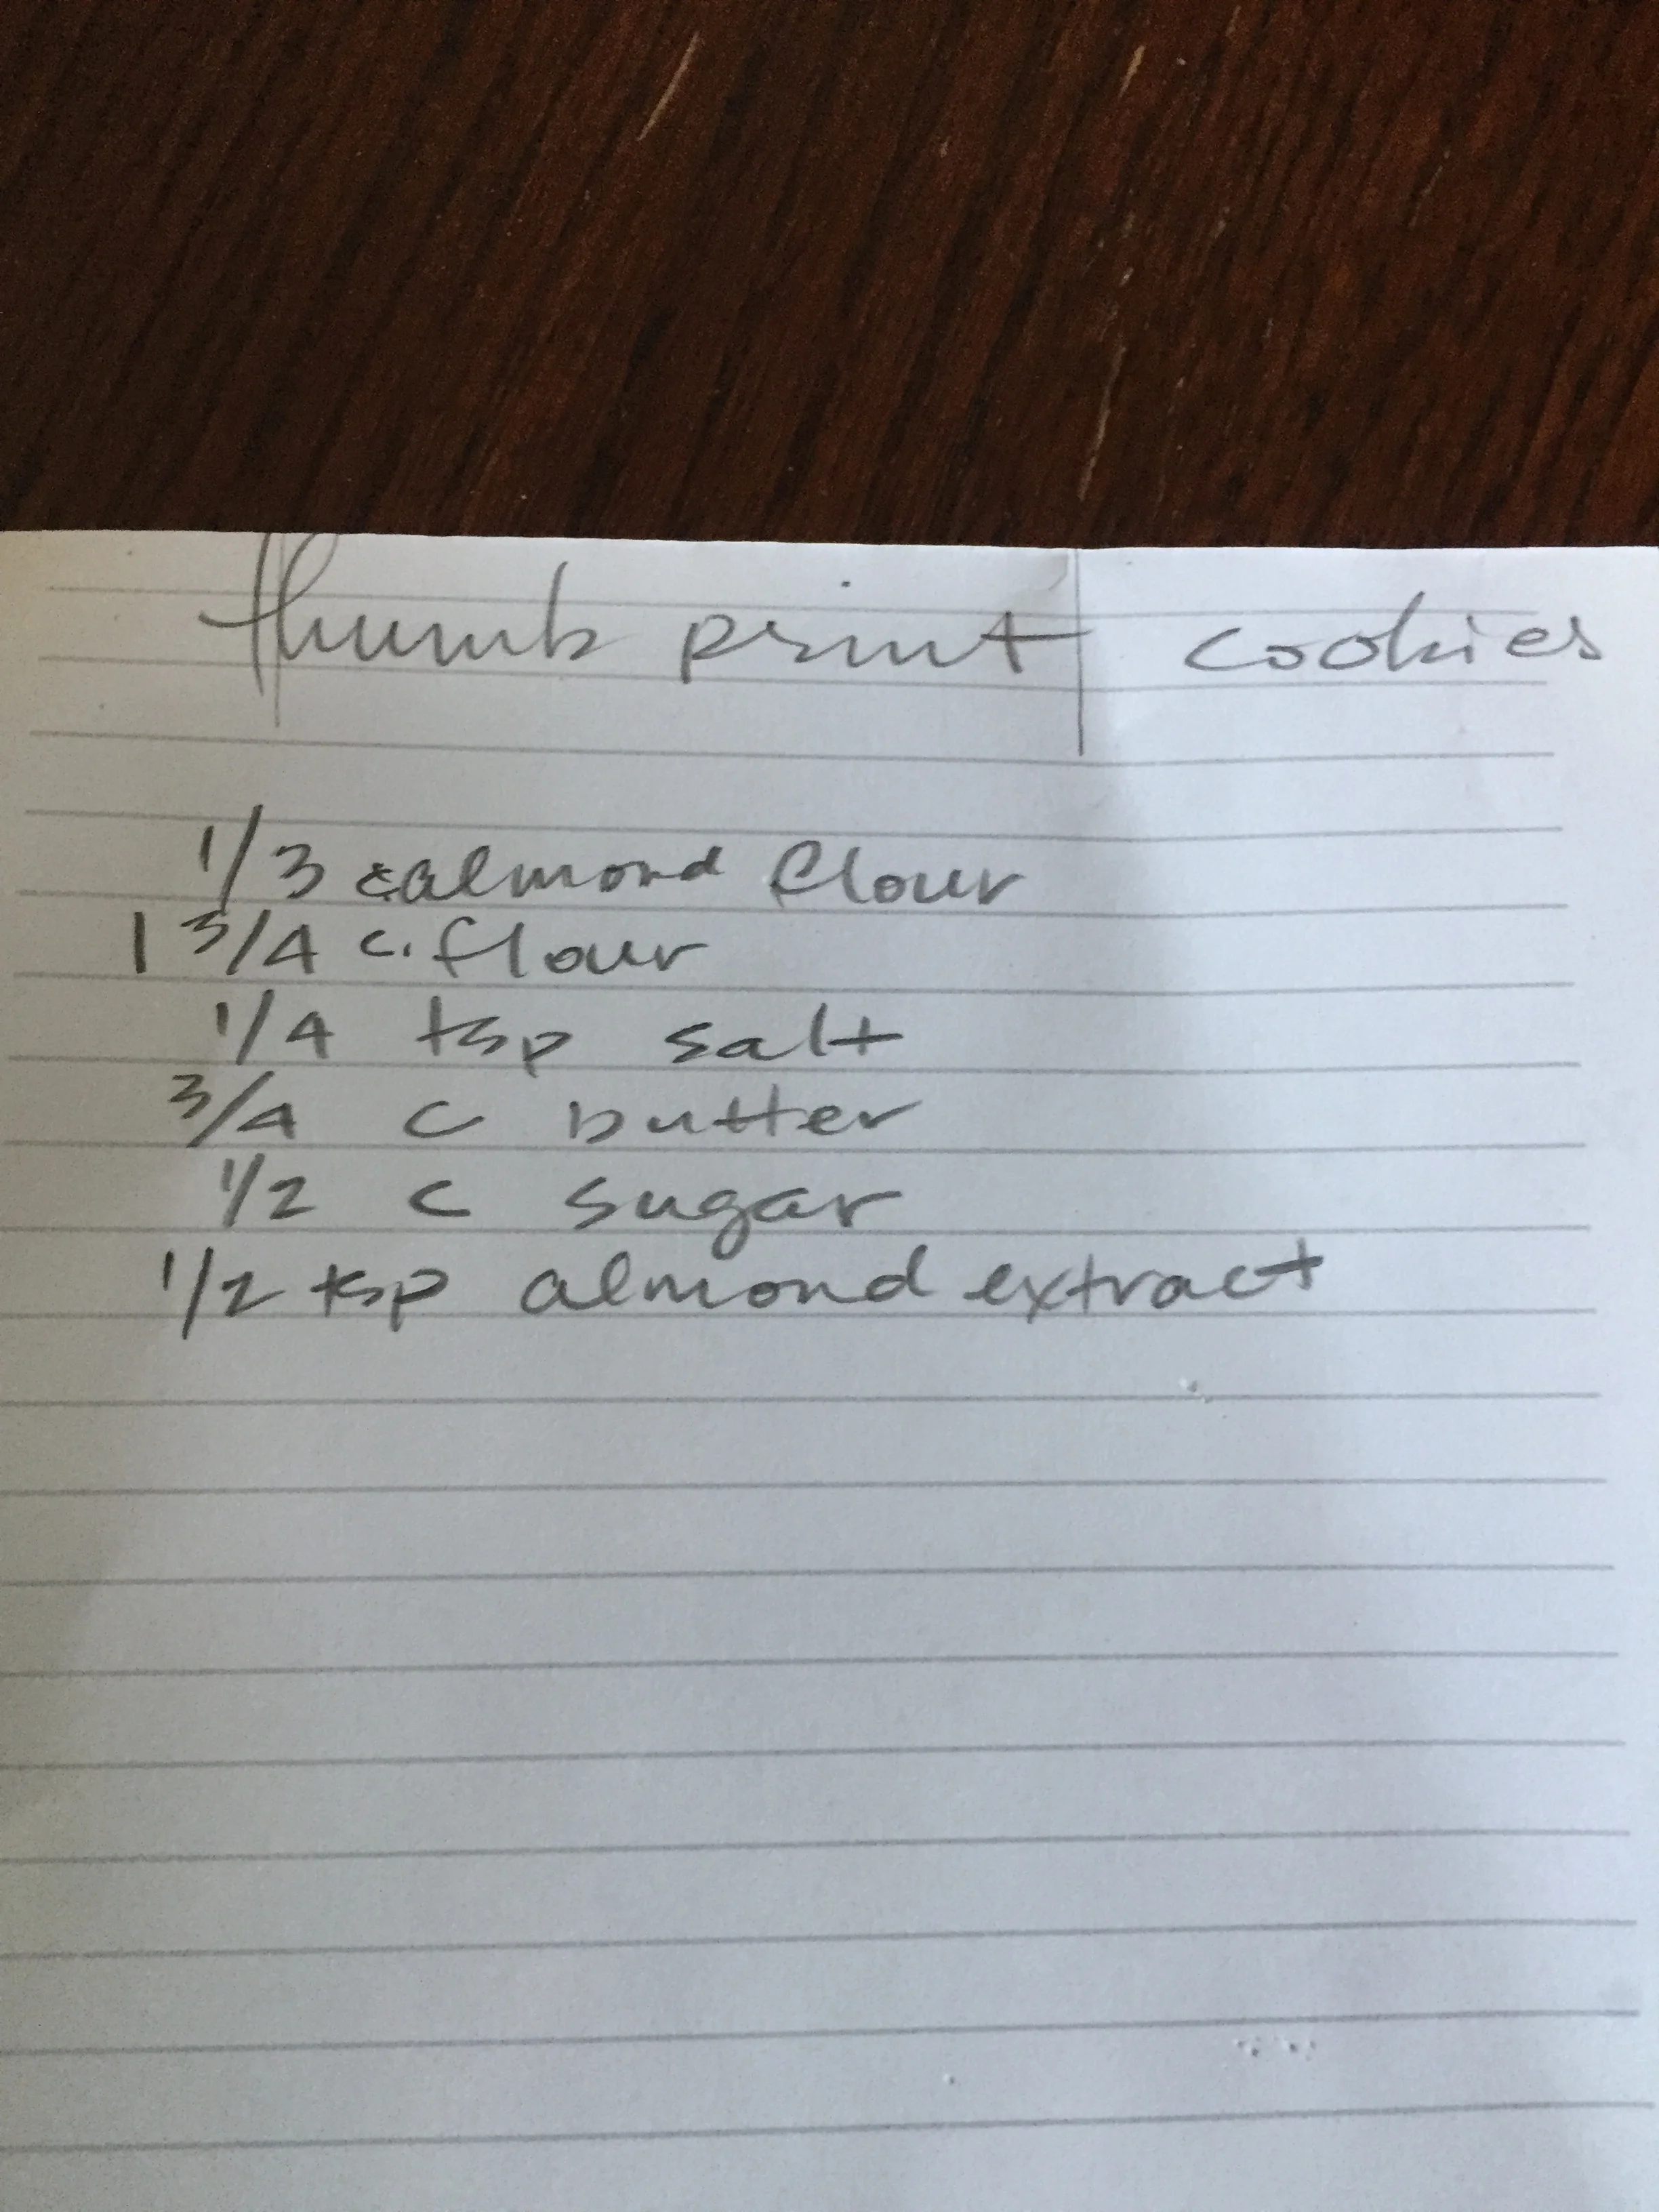 thumb print cookies
1/3 c almond flour
1 3/4 c. flour
1/4 tsp salt
3/4 c butter
1/2 c sugar
1/2 tsp almond extract